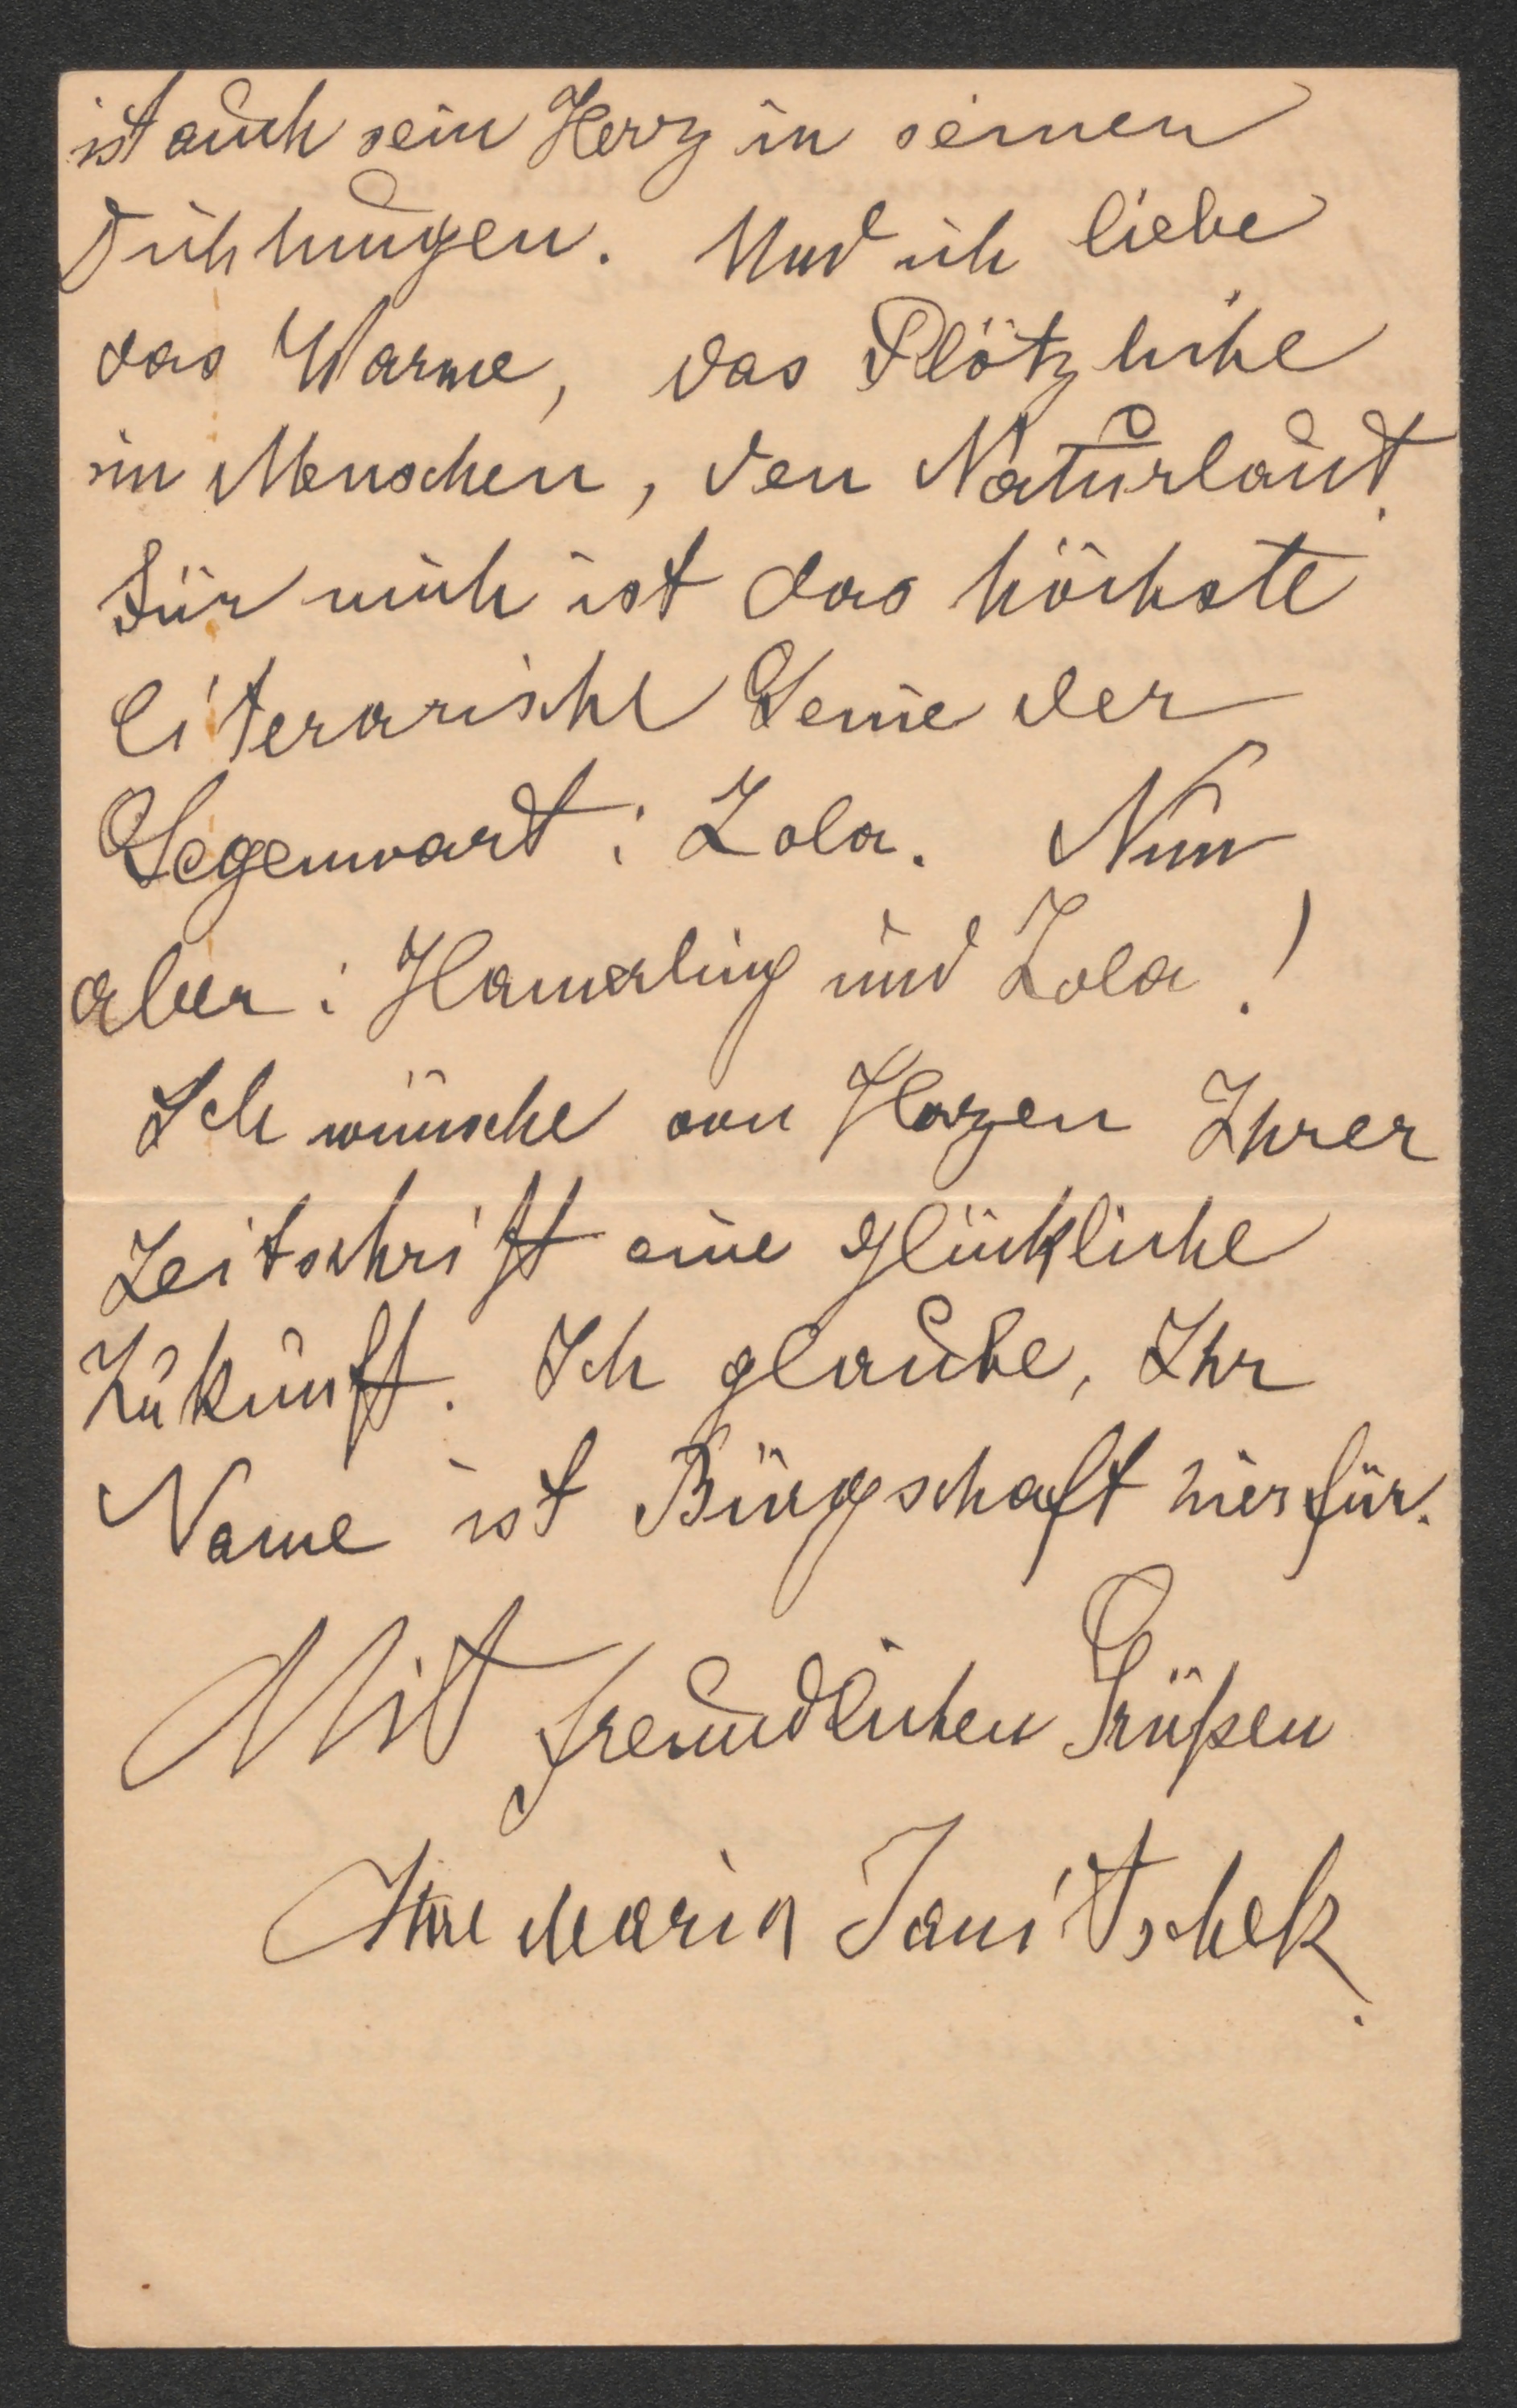 ist auch sein Herz in seinen
Dichtungen. Und ich liebe
das Warme, das Plötzliche
im Menschen, den Naturlaut.
Für mich ist das höchste
literarische Genie der
Gegenwart: Zola. Nun
aber: Hamerling und Zola!
Ich wünsche von Herzen Ihrer
Zeitschrift eine glückliche
Zukunft. Ich glaube, Ihr
Name ist Bürgschaft hierfür.
Mit freundlichen Grüßen
Ihre Maria Janitschek.